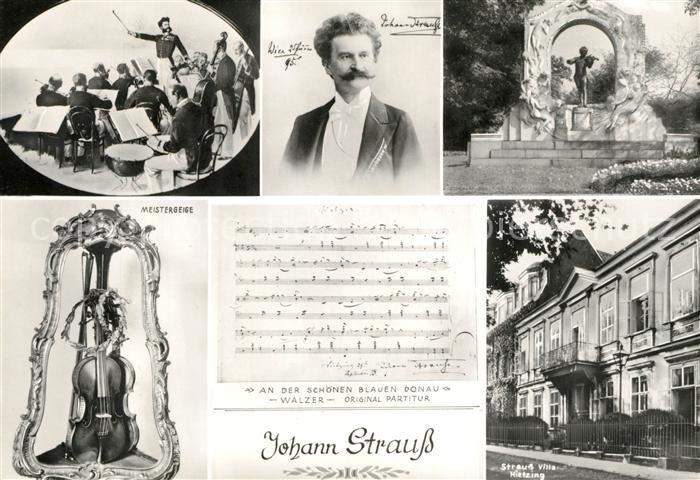 Johann Strauß
Wien
95.
MEISTERGEIGE
Walzer
Hietzing
Johann Strauss
AN DER SCHÖNEN BLAUEN DONAU
– WALZER – ORIGINAL PARTITUR
Johann Strauß
Strauß Villa
Hietzing